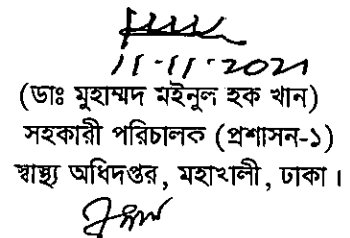 11-11-2021
(ডাঃ মুহাম্মদ মইনুল হক খান)
সহকারী পরিচালক (প্রশাসন-১)
স্বাস্থ্য অধিদপ্তর, মহাখালী, ঢাকা।